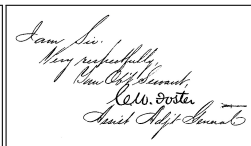 I am Sir.
Very respectfully,
Your Obt Servant,
C. W. Foster
Assist Adjt General